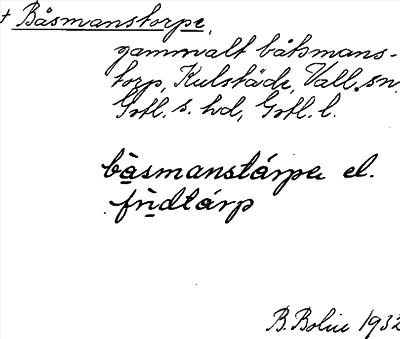 † Båsmanstorpe,
gammalt båtsmans-
torp, Kulstäde, Vall sn,
Gotl. s. hd, Gotl. l.
bå̀smanstárpɛ el.
fri̊dtárp
B. Bolin 1932